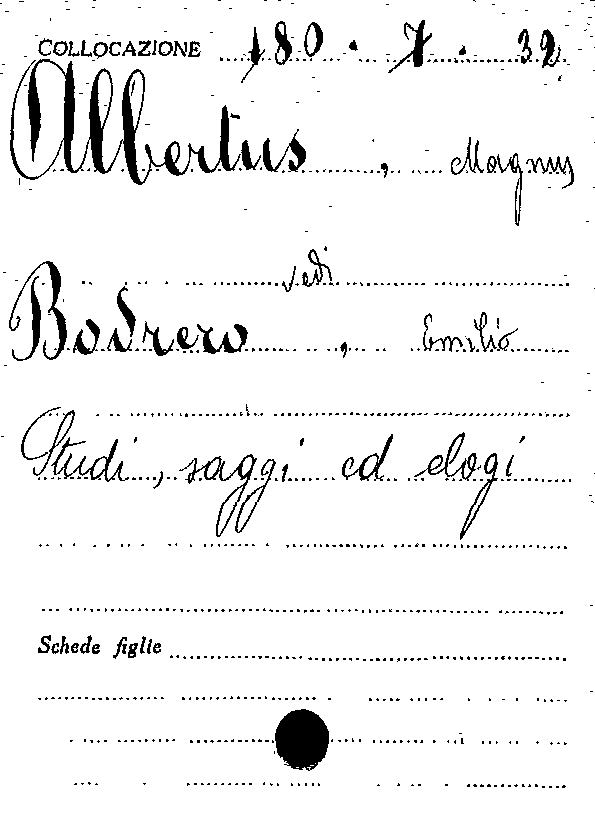 COLLOCAZIONE 180 . 7 . 32
Albertus, Magnus
vedi
Bodrero, Emilio
Studi, saggi ed elogi
Schede figlie